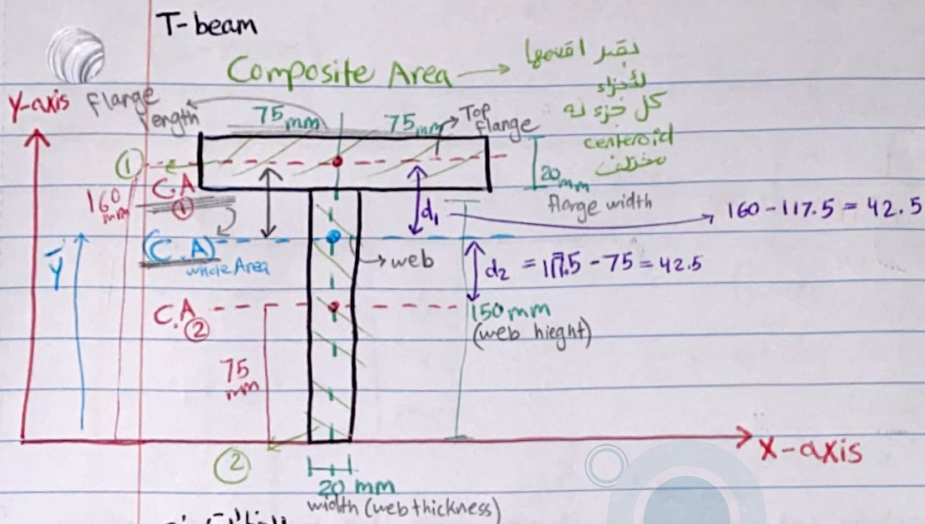 T-beam
Composite Area →
نقدر اقسمها
لأجزاء
كل جزء له
centeroid
مختلف
Y-axis
Flange length
75 mm
75 mm
Top flange
①
C.A ①
160 mm
20 mm
flange width
d₁
160 - 117.5 = 42.5
(C.A)
whole Area
ȳ
web
d₂ = 117.5 - 75 = 42.5
C.A ②
150 mm
(web hieght)
75 mm
②
X-axis
20 mm
width (web thickness)